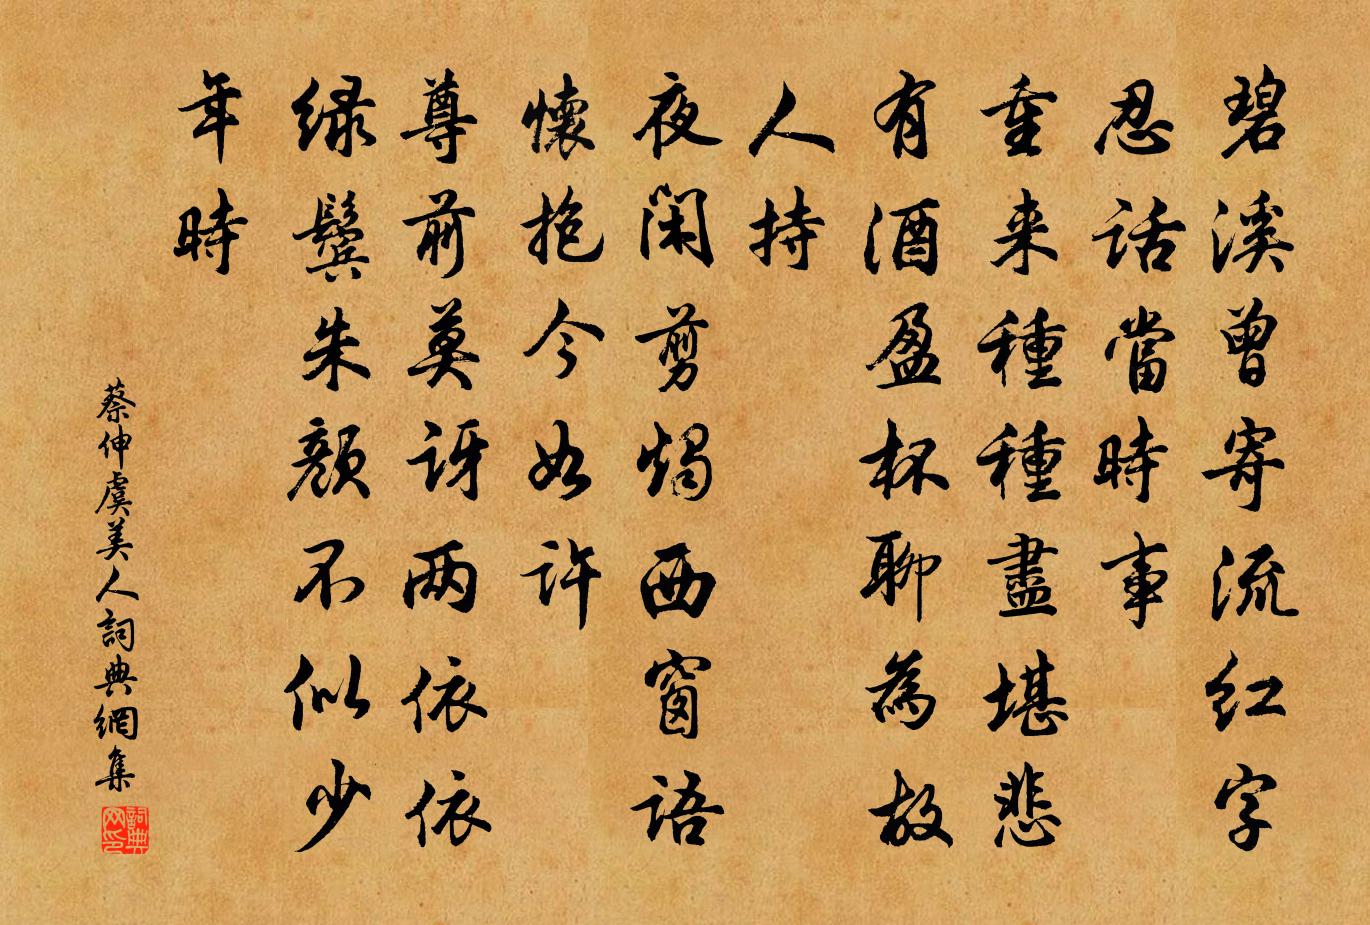 碧溪曾寄流红字
忍话當時事
重来種種盡堪悲
有酒盈杯聊為故
人持
夜闲剪燭西窗语
懷抱今如許
尊前莫讶两依依
绿鬓朱颜不似少
年時
蔡伸虞美人詞典網集
詞典网印